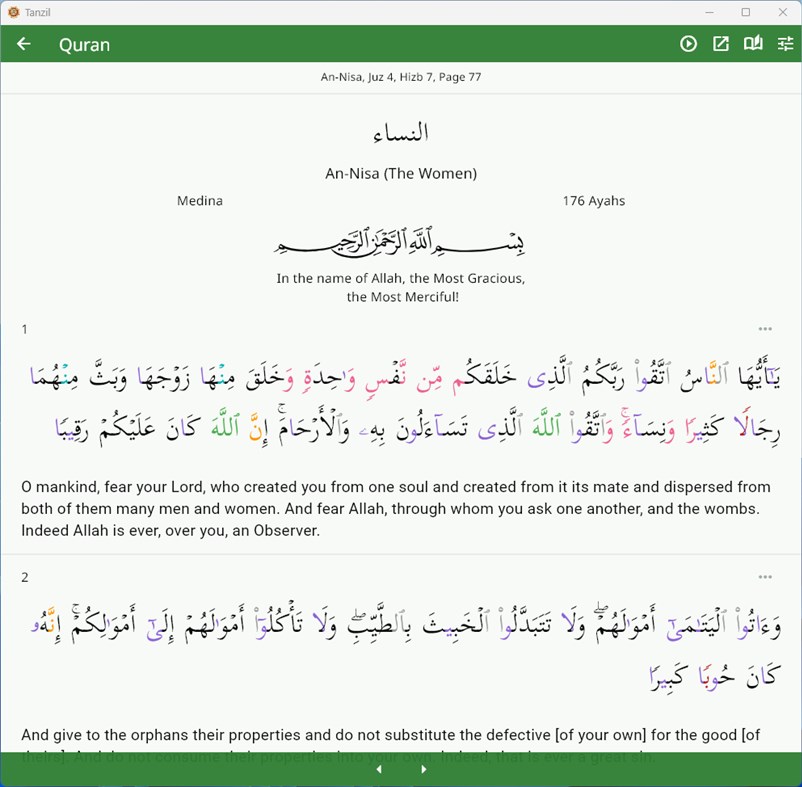 Tanzil
Quran
An-Nisa, Juz 4, Hizb 7, Page 77
النساء
An-Nisa (The Women)
Medina 176 Ayahs
بِسْمِ ٱللَّهِ ٱلرَّحْمَٰنِ ٱلرَّحِيمِ
In the name of Allah, the Most Gracious,
the Most Merciful!
1
يَـٰٓأَيُّهَا ٱلنَّاسُ ٱتَّقُوا۟ رَبَّكُمُ ٱلَّذِى خَلَقَكُم مِّن نَّفْسٍ وَٰحِدَةٍ وَخَلَقَ مِنْهَا زَوْجَهَا وَبَثَّ مِنْهُمَا
رِجَالًا كَثِيرًا وَنِسَآءً ۚ وَٱتَّقُوا۟ ٱللَّهَ ٱلَّذِى تَسَآءَلُونَ بِهِۦ وَٱلْأَرْحَامَ ۚ إِنَّ ٱللَّهَ كَانَ عَلَيْكُمْ رَقِيبًا
O mankind, fear your Lord, who created you from one soul and created from it its mate and dispersed from
both of them many men and women. And fear Allah, through whom you ask one another, and the wombs.
Indeed Allah is ever, over you, an Observer.
2
وَءَاتُوا۟ ٱلْيَتَـٰمَىٰٓ أَمْوَٰلَهُمْ ۖ وَلَا تَتَبَدَّلُوا۟ ٱلْخَبِيثَ بِٱلطَّيِّبِ ۖ وَلَا تَأْكُلُوٓا۟ أَمْوَٰلَهُمْ إِلَىٰٓ أَمْوَٰلِكُمْ ۚ إِنَّهُۥ
كَانَ حُوبًا كَبِيرًا
And give to the orphans their properties and do not substitute the defective [of your own] for the good [of
theirs]. And do not consume their properties into your own. Indeed, that is ever a great sin.